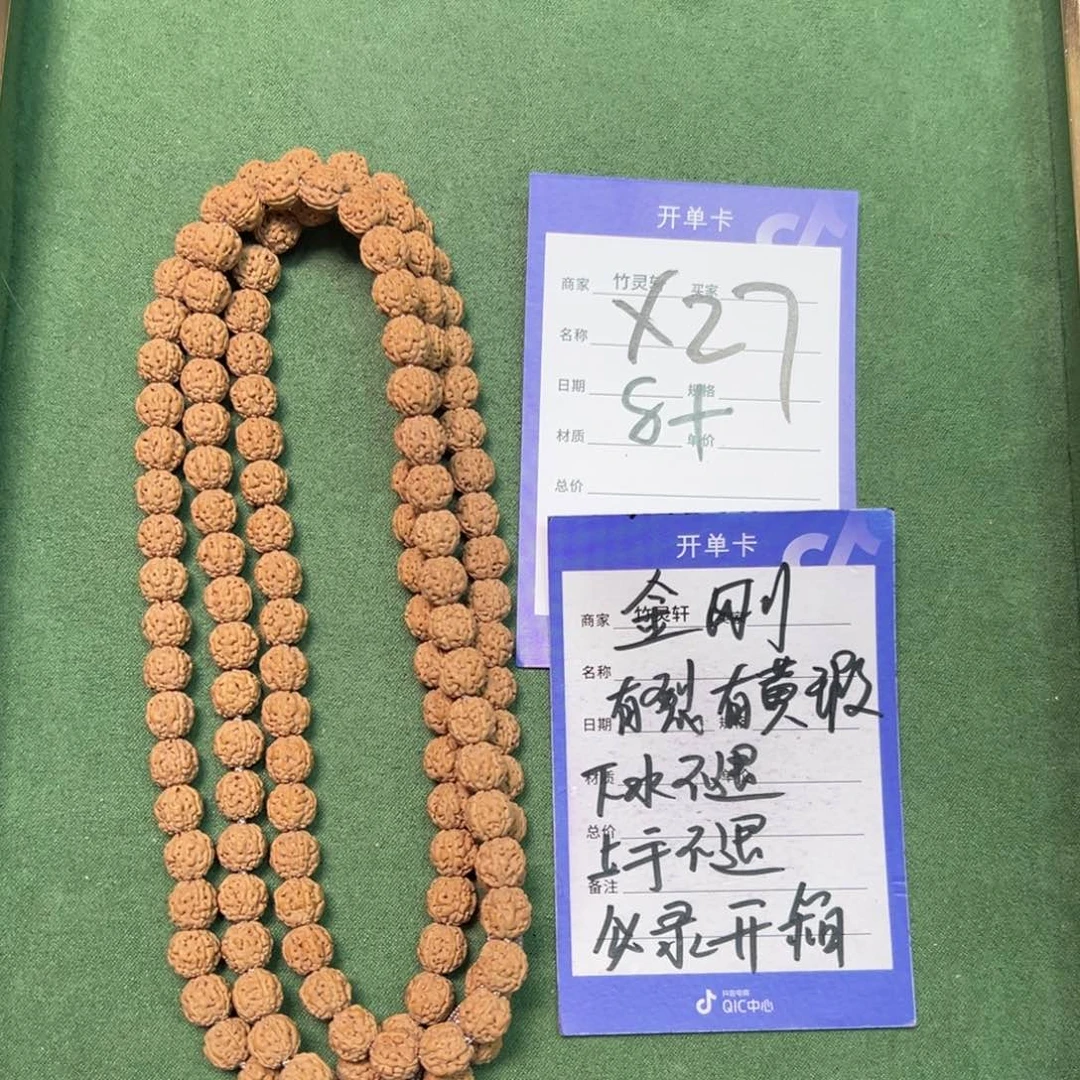 开单卡
商家 竹灵轩 买家
X27
名称
日期 规格
8+
材质 单价
总价
开单卡
商家 竹灵轩
金刚
名称
有裂有黄瑕
日期 规格
材质
下水不退
总价
上手不退
备注
必录开箱
抖音电商
QIC中心